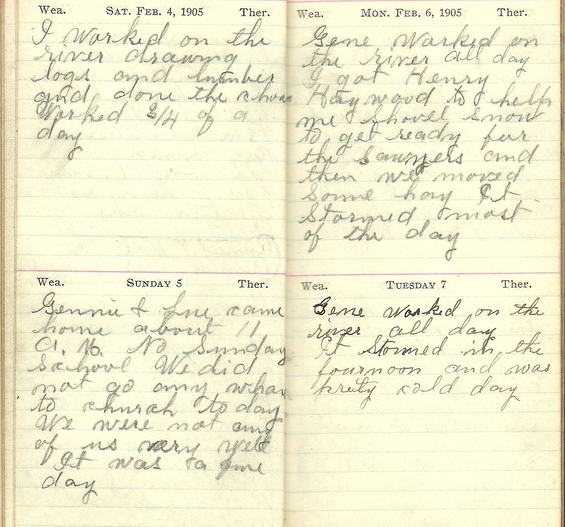 Wea. SAT. FEB. 4, 1905 Ther.
I Worked on the
river drawing
logs and lumber
and done the chors
Worked 3/4 of a
day
Wea. SUNDAY 5 Ther.
Gennie & came
home about 11
A. M. No Sunday
School We did
not go any whare
to church to day
We were not any
of us very well
It was a fine
day
Wea. MON. FEB. 6, 1905 Ther.
Gene Worked on
the river all day
I got Henry
Haywood to help
me shovel snow
to get ready for
the Sawyers and
then we moved
Some hay It
Stormed most
of the day
Wea. TUESDAY 7 Ther.
Gene worked on the
river all day
It Stormed in the
fournoon and was
prety cold day